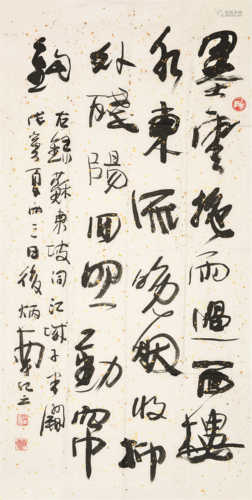 墨雲拖雨過西樓
水東流晚烟收柳
外殘陽回照動簾
鈎
右錄蘇東坡詞江城子半闋
戊寅夏雨三日後炳南記之